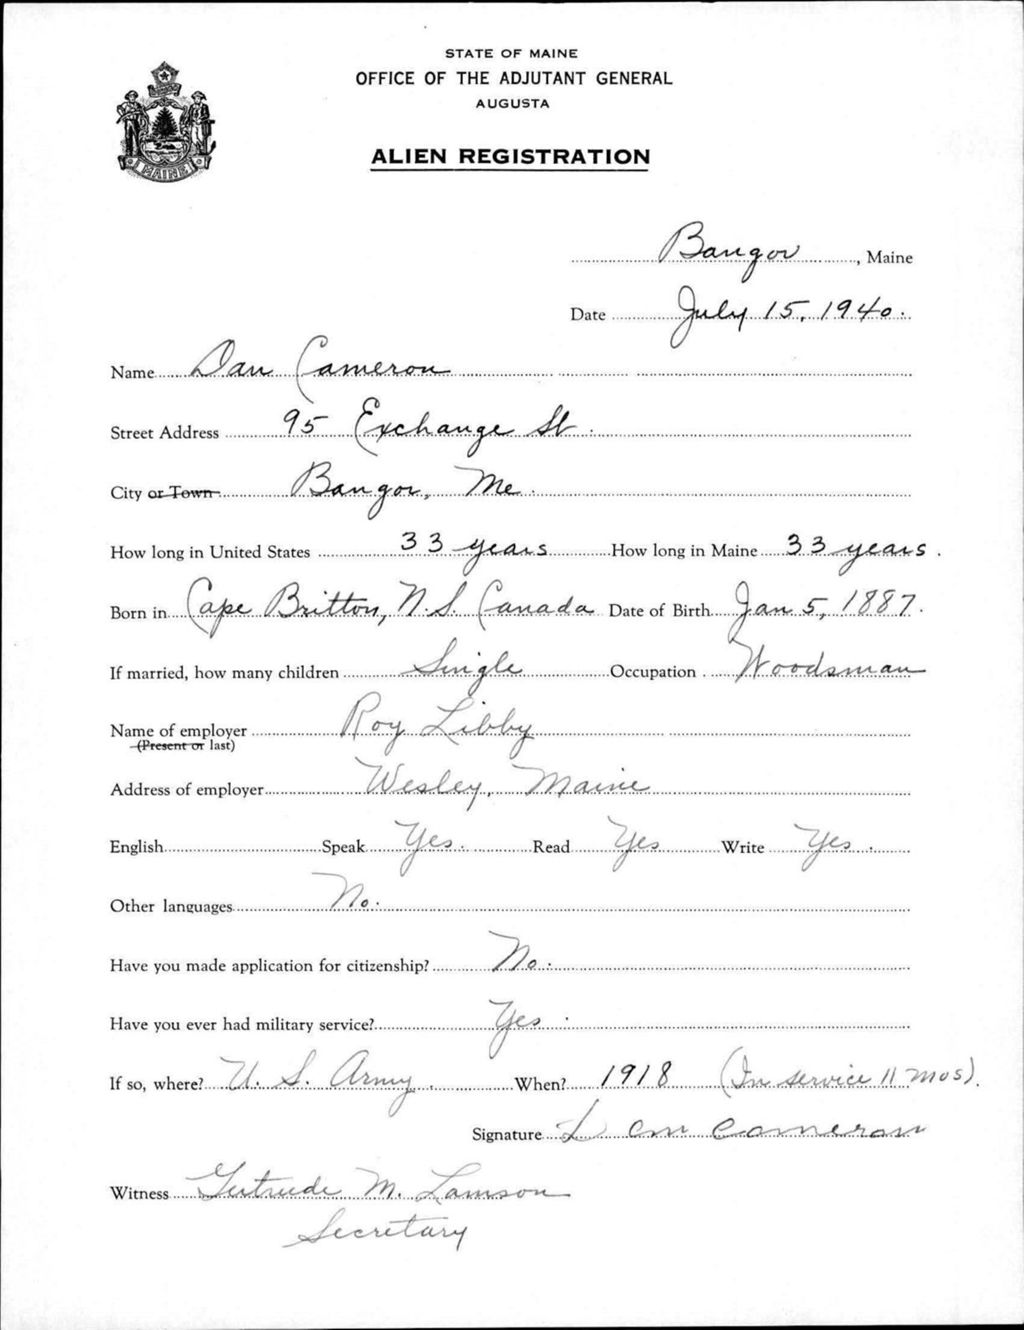 STATE OF MAINE
OFFICE OF THE ADJUTANT GENERAL
AUGUSTA
ALIEN REGISTRATION
MAINE
Bangor, Maine
Date July 15, 1940.
Name Dan Cameron
Street Address 95 Exchange St.
City or Town Bangor, Me.
How long in United States 33 years How long in Maine 33 years.
Born in Cape Britton, N.S. Canada Date of Birth Jan 5, 1887.
If married, how many children Single Occupation Woodsman
Name of employer Roy Libby
(Present or last)
Address of employer Wesley, Maine
English Speak Yes. Read Yes Write Yes.
Other languages No.
Have you made application for citizenship? No.
Have you ever had military service? Yes.
If so, where? U. S. Army. When? 1918 (In service 11 mos).
Signature Cameron
Witness Gertrude M. Lamson
Secretary